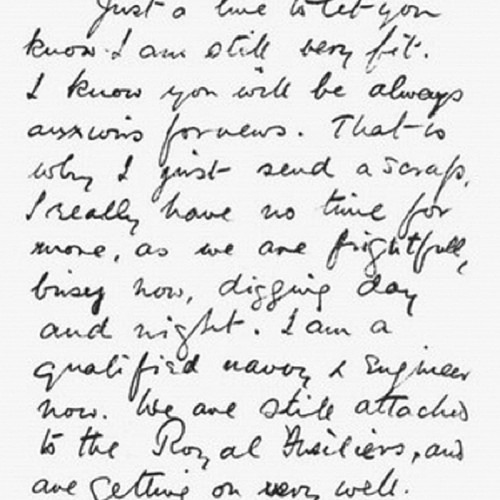 Just a line to let you
know I am still very fit.
I know you will be always
anxious for news. That is
why I just send a scrap,
I really have no time for
more, as we are frightfully
busy now, digging day
and night. I am a
qualified navvy & Engineer
now. We are still attached
to the Royal Fusiliers, and
are getting on very well.